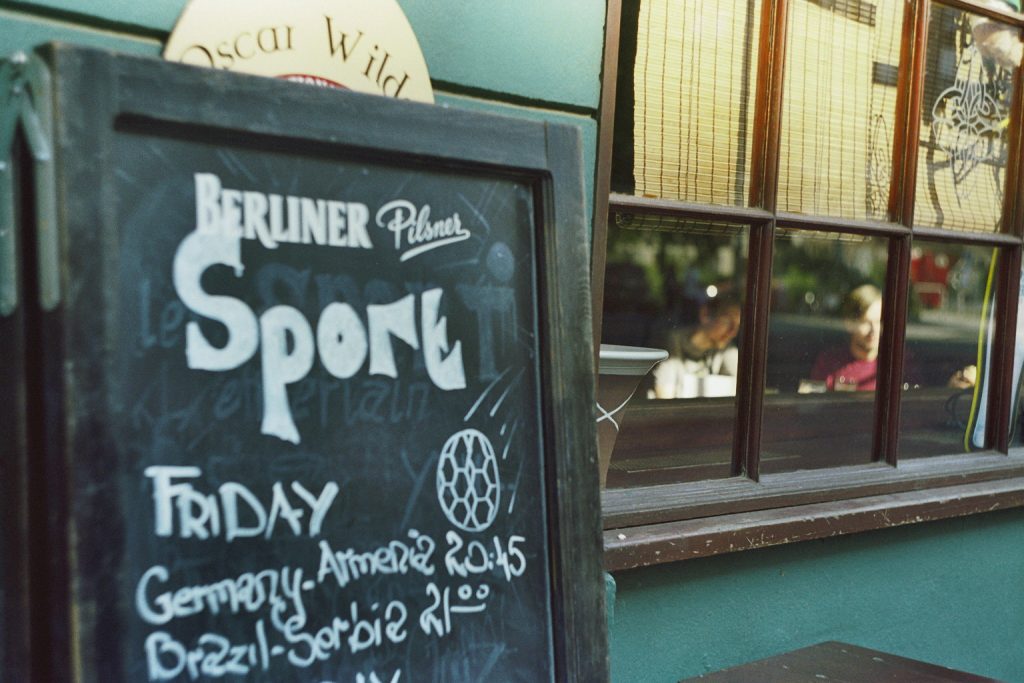 Oscar Wild
BERLINER Pilsner
SPORT
FRIDAY
Germany-Armenia 20:45
Brazil-Serbia 21:00